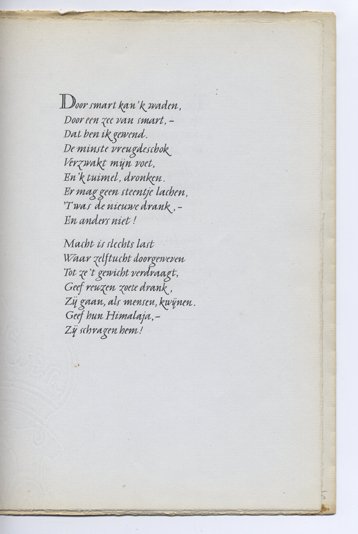 Door smart kan 'k waden,
Door een zee van smart, –
Dat ben ik gewend.
De minste vreugdeschok
Verzwakt mijn voet,
En 'k tuimel, dronken.
Er mag geen steentje lachen,
'T was de nieuwe drank, –
En anders niet!

Macht is slechts last
Waar zelftucht doorgeweven
Tot ze 't gewicht verdraagt,
Geef reuzen zoete drank,
Zij gaan, als mensen, kwijnen.
Geef hun Himalaja, –
Zij schragen hem!